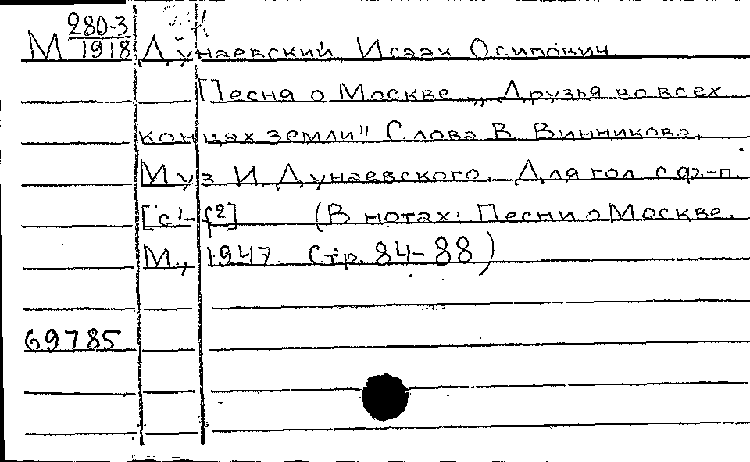 М 280-3/1918 Дунаевский Исаак Осипович
Песня о Москве „Друзья во всех
концах земли" Слова В. Винникова.
Муз И. Дунаевского. Для гол. с ф-п.
[c¹-f²] (В нотах: Песни о Москве.
М., 1947 Стр. 84-88)
69785